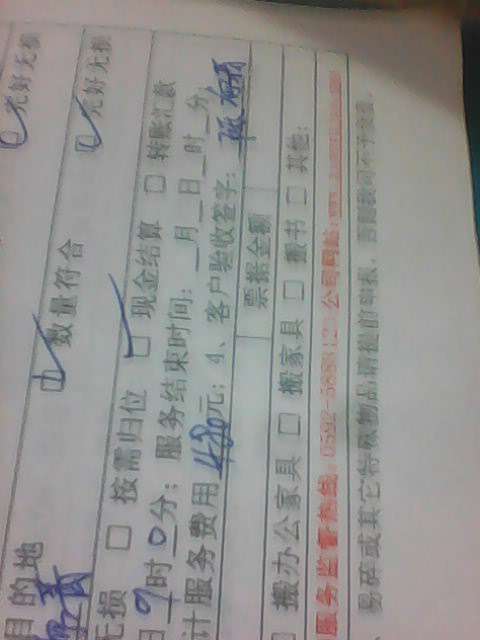 目的地 ☑ 数量符合 ☑ 完好无损
☑ 完好无损
无损 □ 按需归位 ☑ 现金结算 □ 转账汇款
日9时0分；服务结束时间：__月__日__时__分
计服务费用480元；4、客户验收签字：
票据金额
□ 搬办公家具 □ 搬家具 □ 搬书 □ 其他：
服务监督热线：0592-5888121 公司网站：
易碎或其它特殊物品请提前申报，否则我司不予负责。